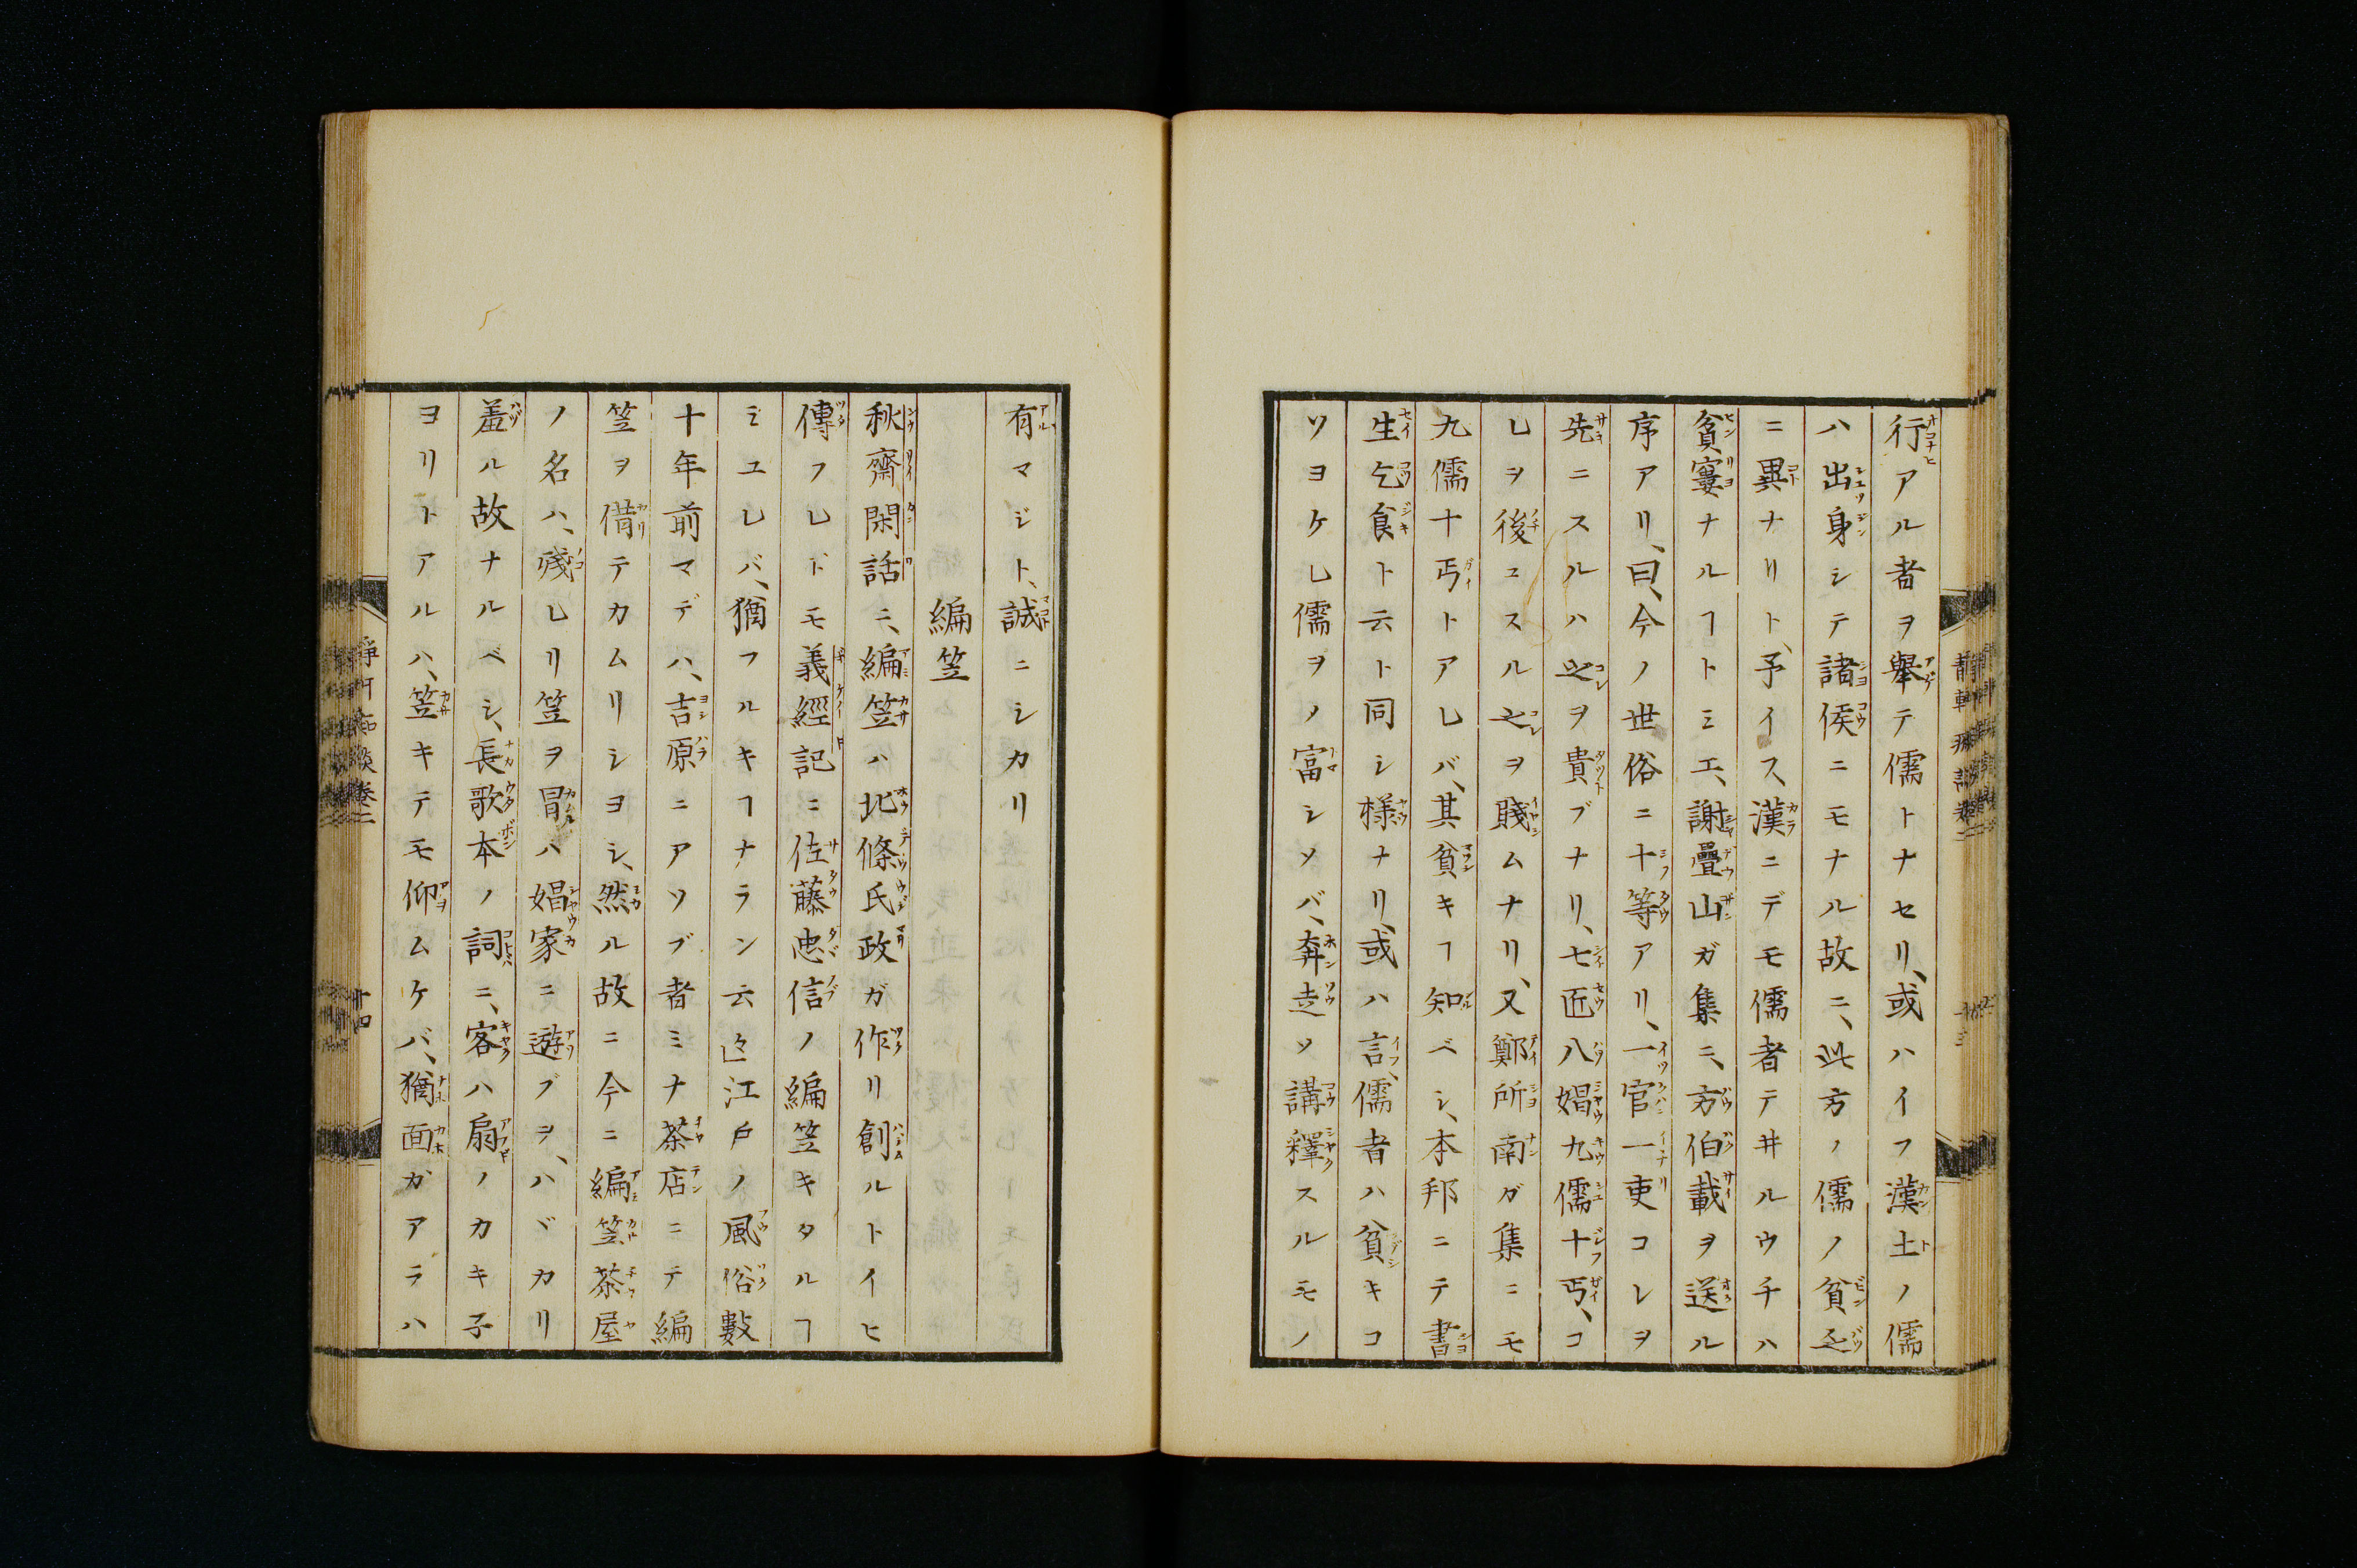 行アル者ヲ擧テ儒トナセリ、或ハイフ漢土ノ儒
ハ出身シテ諸侯ニモナル故ニ、此方ノ儒ノ貧乏
ニ異ナリト、予イス、漢ニデモ儒者テ井ルウチハ
貧窶ナルヿトミエ、謝疊山ガ集ニ、方伯載ヲ送ル
序アリ、曰、今ノ世俗ニ十等アリ、一官一吏コレヲ
先ニスルハ之ヲ貴ブナリ、七匠八娼九儒十丐、コ
レヲ後ニスル之ヲ賤ムナリ、又鄭所南ガ集ニモ
九儒十丐トアレバ、其貧キヿ知ベシ、本邦ニテ書
生乞食ト云ト同シ様ナリ、或ハ言、儒者ハ貧キコ
ソヨケレ儒ヲノ富シソバ、奔走ソ講釋スルモノ
有マジト、誠ニシカリ
編笠
秋齋閑話ニ、編笠ハ北條氏政ガ作リ創ルトイヒ
傳フレドモ義經記ニ佐藤忠信ノ編笠キタルヿ
ミユレバ、猶フルキヿナラン云々」江戸ノ風俗數
十年前マデハ、吉原ニアソブ者ミナ茶店ニテ編
笠ヲ借テカムリシヨシ、然ル故ニ今ニ編笠茶屋
ノ名ハ、殘レリ笠ヲ冒ハ娼家ニ遊ブヲ、ハヾカリ
羞ル故ナルベシ、長歌本ノ詞ニ、客ハ扇ノカキ子
ヨリトアルハ、笠キテモ仰ムケバ、猶面ガアラハ
卷二
廿四